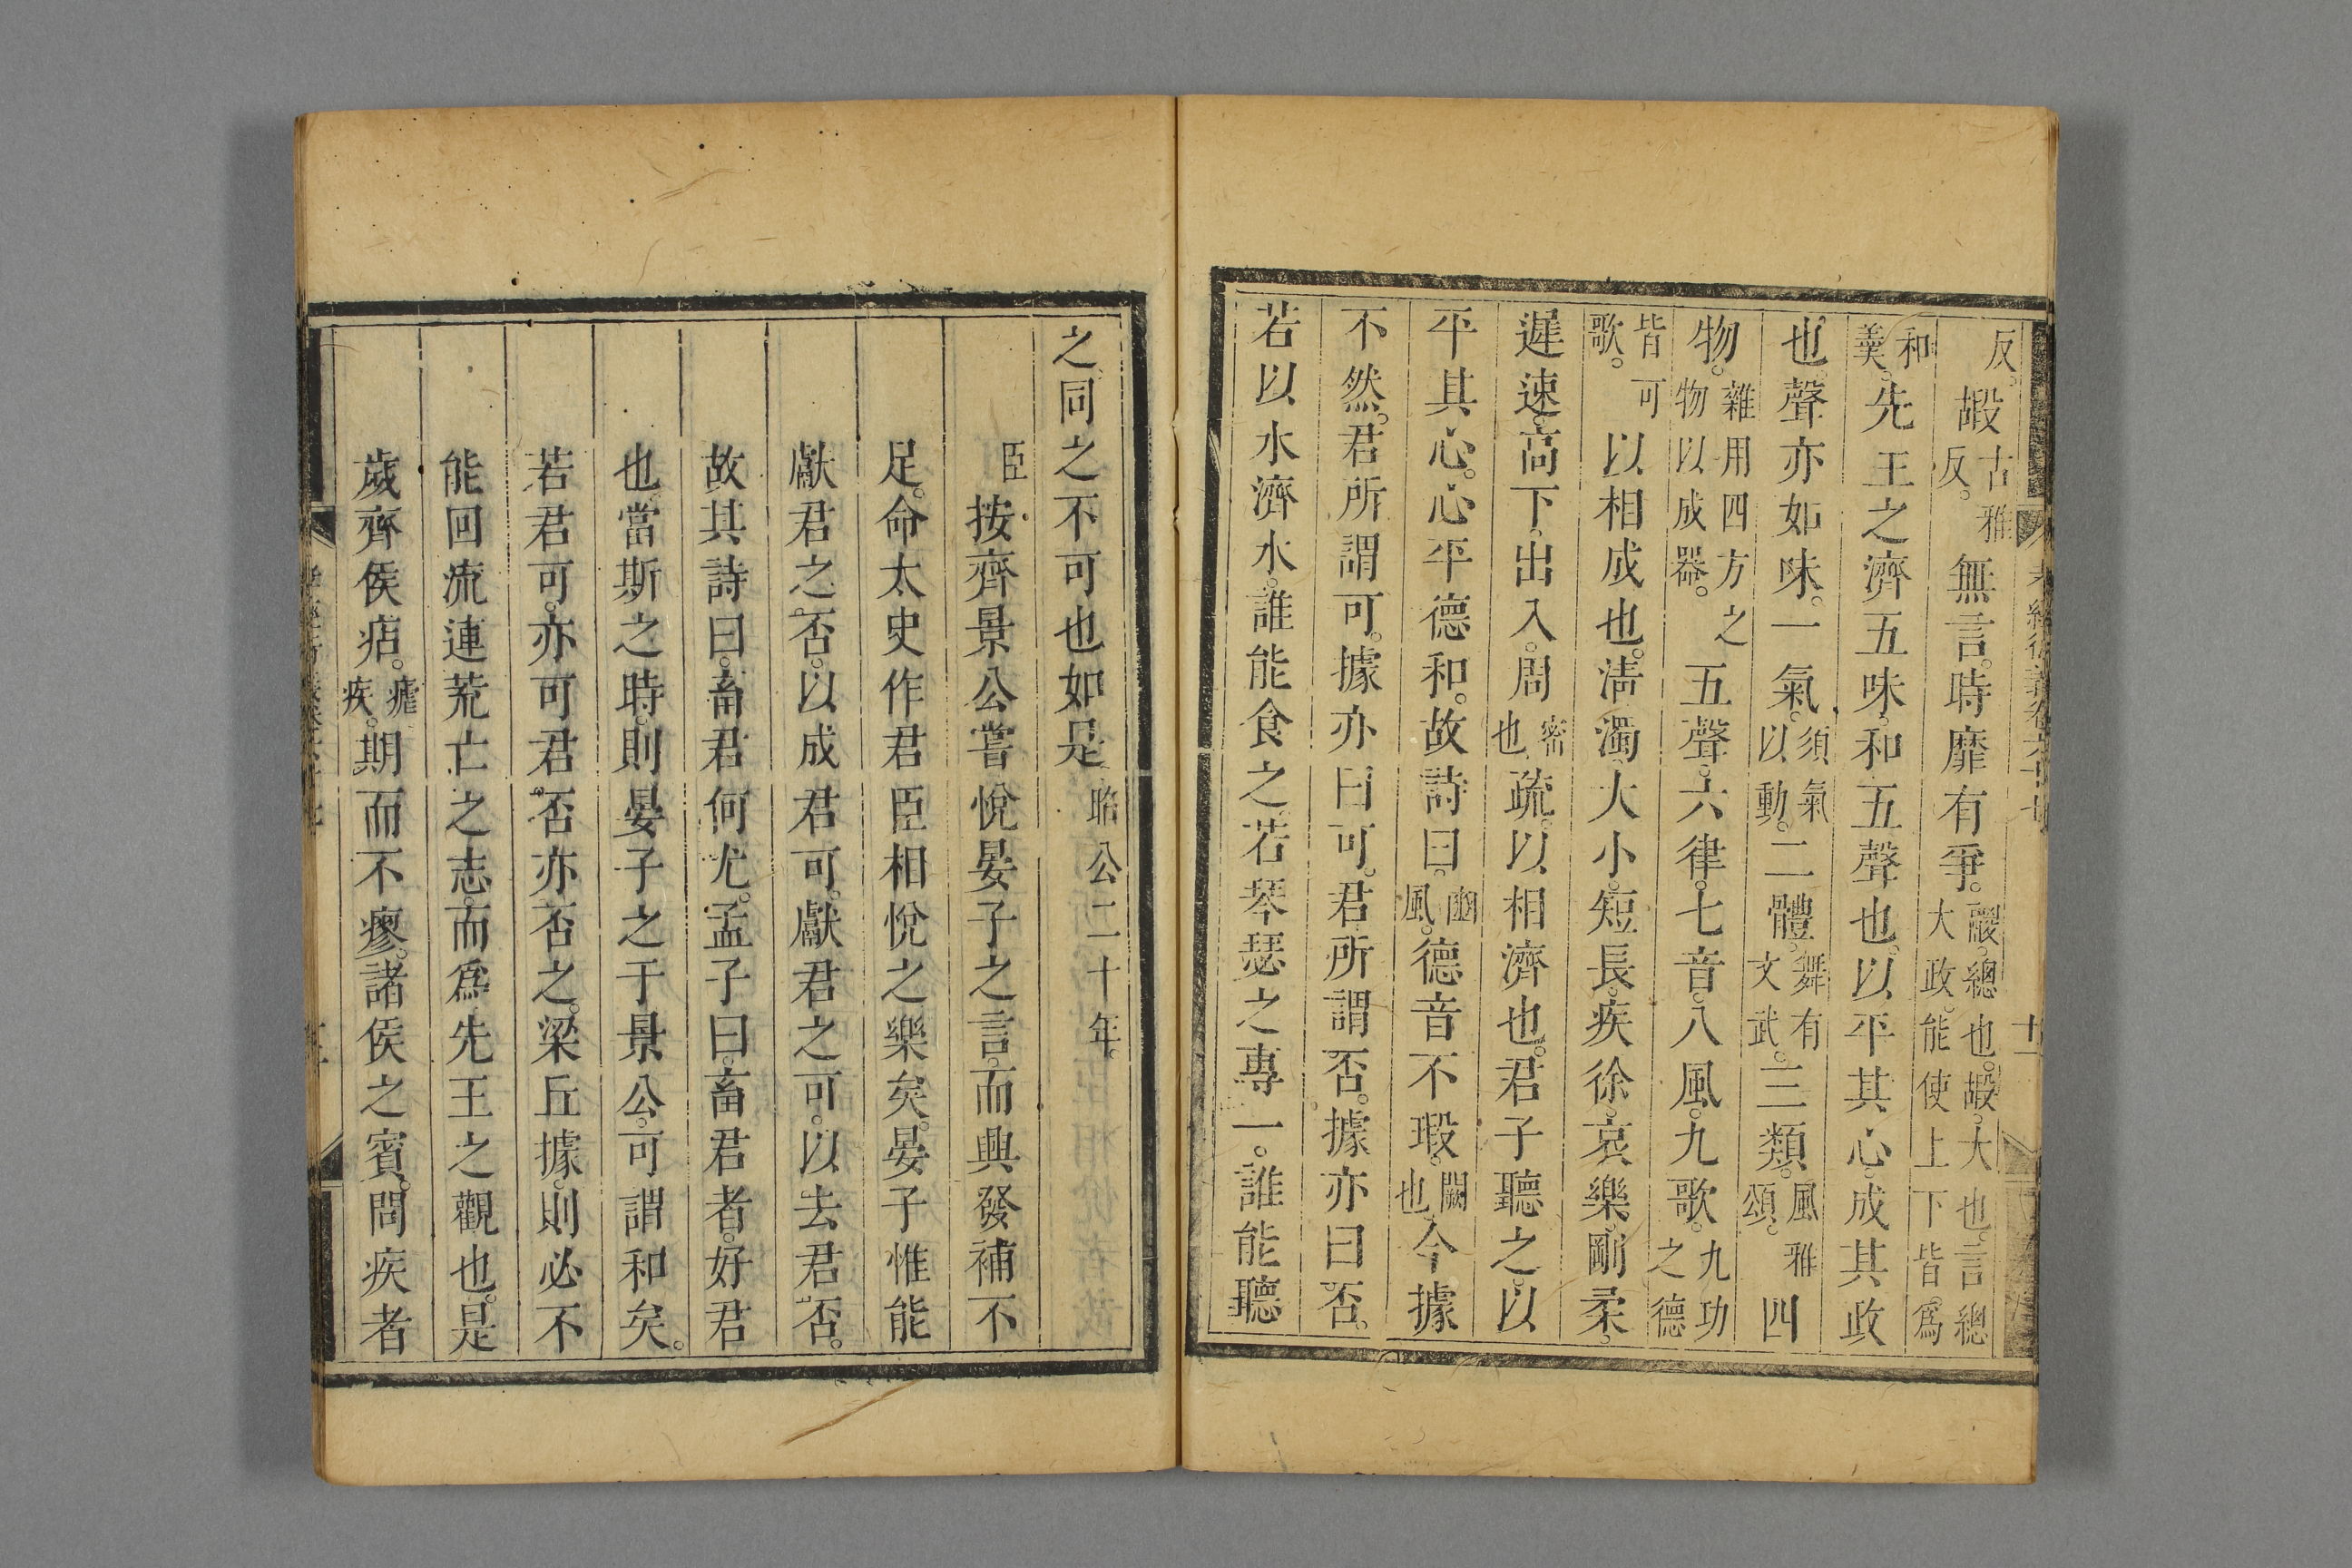 經衍義卷六十七　十一
反。嘏古雅反。無言。時靡有爭。鬷。總也。嘏。大也。言總大政。能使上下皆爲
和羹。先王之濟五味。和五聲也。以平其心。成其政
也。聲亦如味。一氣。須氣以動。二體。舞有文武。三類。風雅頌。四
物。雜用四方之物以成器。五聲。六律。七音。八風。九歌。九功之德
皆可歌。以相成也。淸濁。大小。短長。疾徐。哀樂。剛柔。
遲速。高下。出入。周密也疏。以相濟也。君子聽之。以
平其心。心平德和。故詩曰。豳風。德音不瑕。闕也。今據
不然。君所謂可。據亦曰可。君所謂否。據亦曰否。
若以水濟水。誰能食之。若琴瑟之專一。誰能聽
之。同之不可也如是。昭公二十年。
臣按齊景公嘗悅晏子之言。而興發補不
足。命太史作君臣相悅之樂矣。晏子惟能
獻君之否。以成君可。獻君之可。以去君否。
故其詩曰。畜君何尤。孟子曰。畜君者。好君
也。當斯之時。則晏子之于景公。可謂和矣。
若君可。亦可君否。亦否之。梁丘據。則必不
能回流連荒亡之志。而爲先王之觀也。是
歲齊侯痁。瘧疾。期而不瘳。諸侯之賓。問疾者